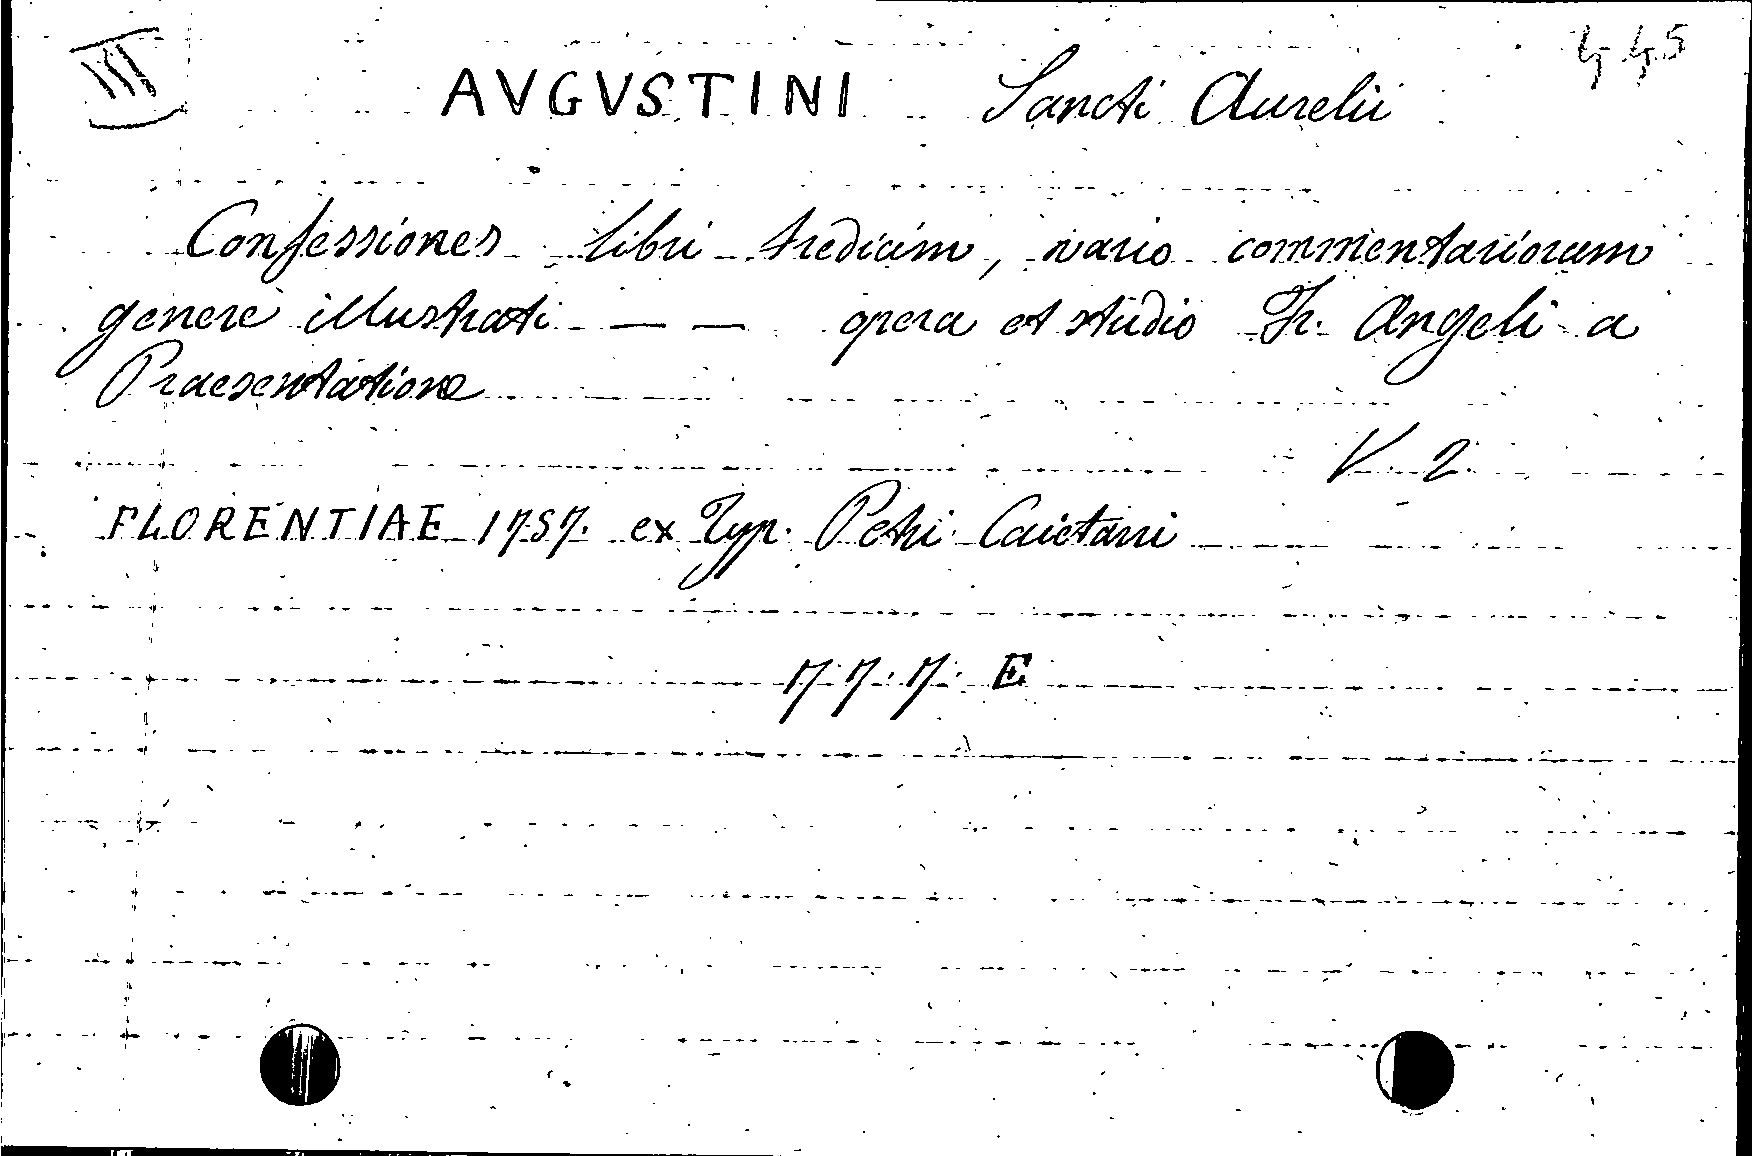 III AVGVSTINI Sancti Aurelii 445
Confessiones libri tredicim, vario commentariorum
genere illustrati — — opera et studio Fr. Angeli a
Praesentatione
V. 2
FLORENTIAE 1757. ex Typ. Petri Caietani
7.7.7. E